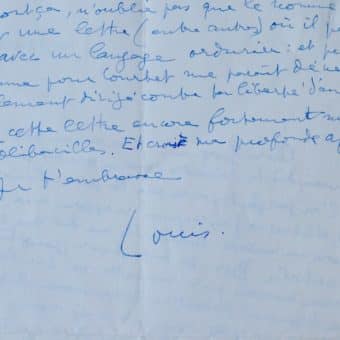 n'oublie pas que le nommé
une lettre (entre autres) où il p
avec un langage ordurier : et p
pour Courbet me paraît
dirigé contre la liberté d'
cette lettre encore fortement
colibacilles. Et crois à ma profonde a
Je t'embrasse
Louis.